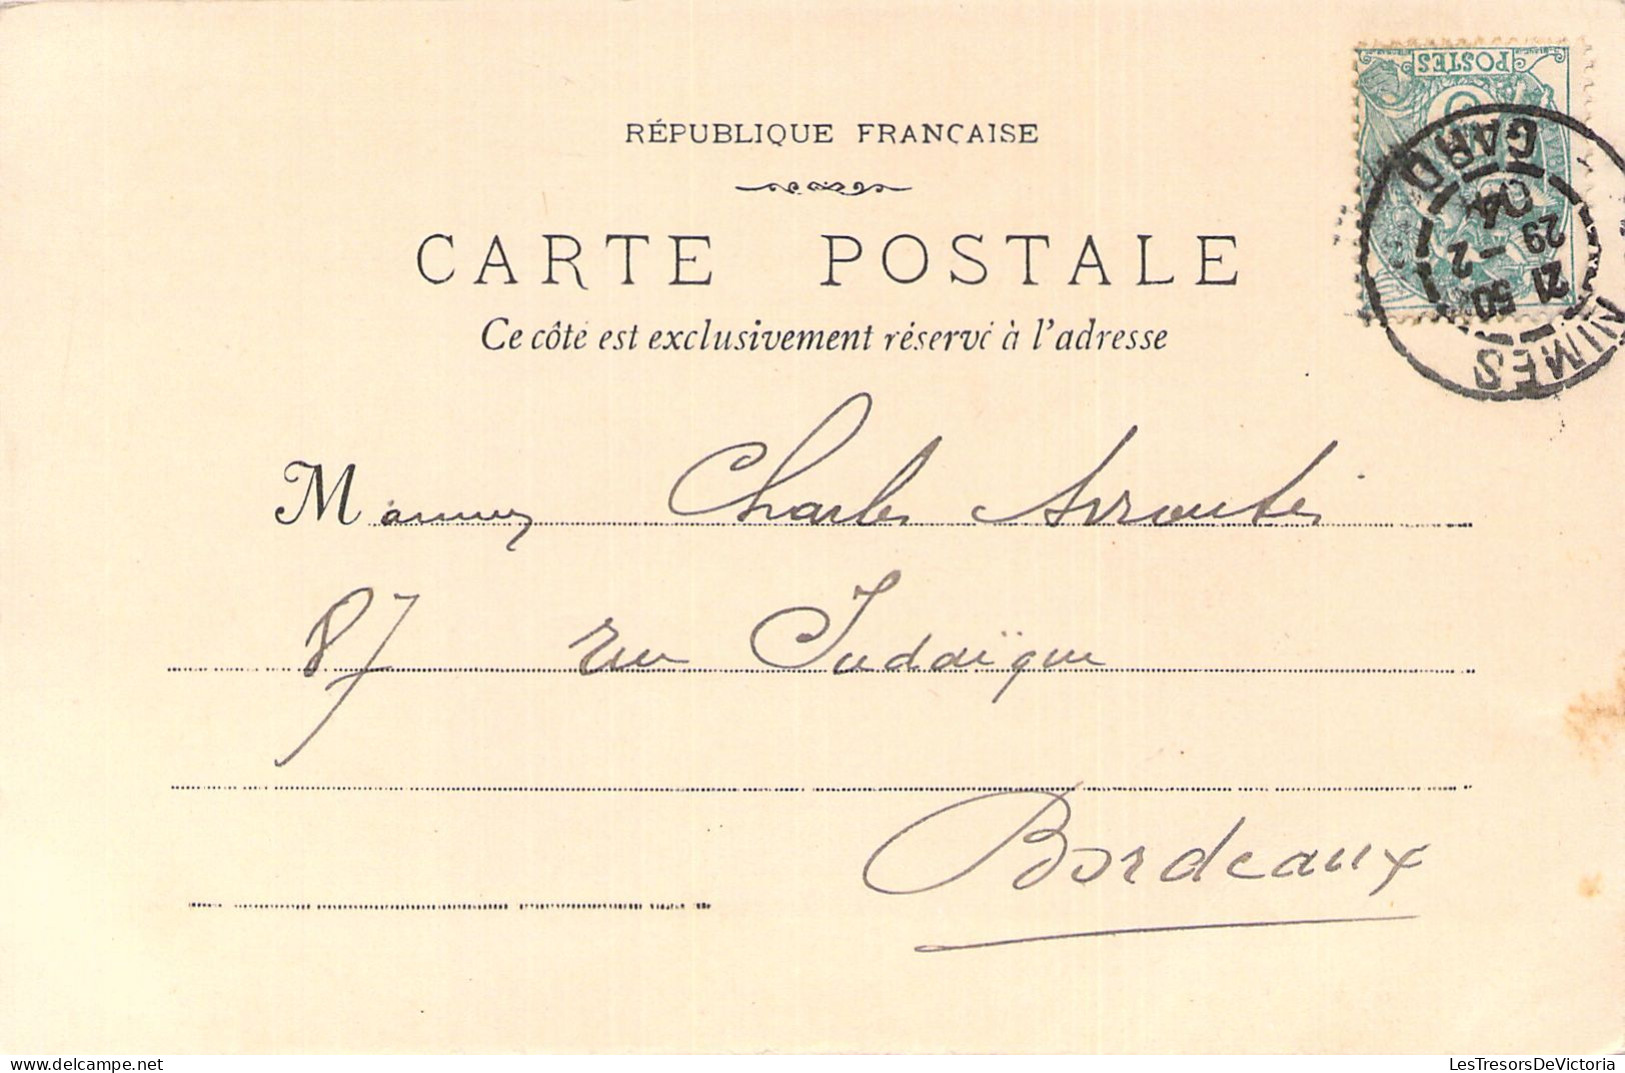 POSTES
RÉPUBLIQUE FRANÇAISE
CARTE POSTALE
Ce côté est exclusivement réservé à l'adresse
NIMES
21 50
29 - 2
04
GARD
M Charles Arrouteï
87 rue Judaïque
Bordeaux
LesTresorsDeVictoria